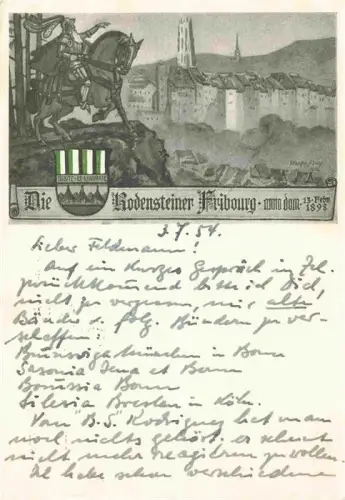 Die Rodensteiner Fribourg · anno dom · 13. Febr. 1898
3.7.54.
Lieber Feldmann!
Auf ein kurzes Gespräch in Zel.
zurückkommend bitte ich Dich,
nicht zu vergessen, mir alte!
Bänder v. folg. Bündern zu ver-
schaffen:
Brunsviga München in Bonn
Saxonia Jena et Bonn
Borussia Bonn
Silesia Breslau in Köln.
Vom "B.S." Rodriguez hat man
noch nichts gehört. er scheint
nicht mehr reagieren zu wollen.
Ich habe schon verschiedene